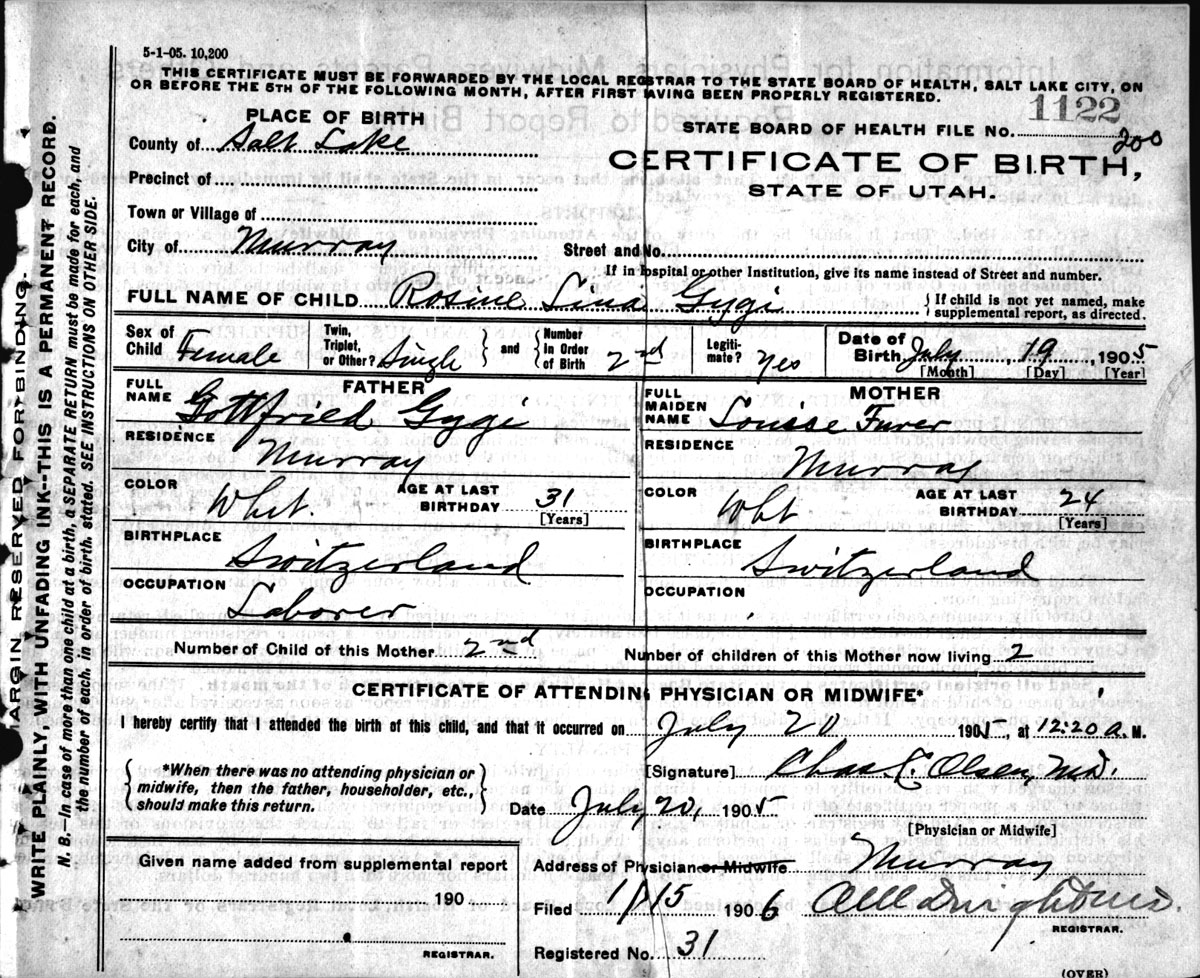 5-1-05. 10,200
THIS CERTIFICATE MUST BE FORWARDED BY THE LOCAL REGISTRAR TO THE STATE BOARD OF HEALTH, SALT LAKE CITY, ON
OR BEFORE THE 5TH OF THE FOLLOWING MONTH, AFTER FIRST HAVING BEEN PROPERLY REGISTERED.
PLACE OF BIRTH
STATE BOARD OF HEALTH FILE NO. 1122
200
County of Salt Lake
CERTIFICATE OF BIRTH,
STATE OF UTAH.
Precinct of
Town or Village of
City of Murray Street and No.
If in Hospital or other Institution, give its name instead of Street and number.
FULL NAME OF CHILD Rosine Lina Gygi } If child is not yet named, make supplemental report, as directed.
Sex of Child Female Twin, Triplet, or Other? Single } and { Number In Order of Birth 2nd Legiti-mate? Yes Date of Birth July 19 1905
[Month] [Day] [Year]
FATHER MOTHER
FULL NAME Gottfried Gygi FULL MAIDEN NAME Louise Furer
RESIDENCE Murray RESIDENCE Murray
COLOR Whit. AGE AT LAST BIRTHDAY 31 [Years] COLOR Wht AGE AT LAST BIRTHDAY 24 [Years]
BIRTHPLACE Switzerland BIRTHPLACE Switzerland
OCCUPATION Laborer OCCUPATION
Number of Child of this Mother 2nd Number of children of this Mother now living 2
CERTIFICATE OF ATTENDING PHYSICIAN OR MIDWIFE*
I hereby certify that I attended the birth of this child, and that it occurred on July 20 1905, at 12:20 A. M.
{ *When there was no attending physician or midwife, then the father, householder, etc., should make this return. }
[Signature] Chas. C. Olsen, M.D.
Date July 20, 1905
[Physician or Midwife]
Given name added from supplemental report
190
REGISTRAR.
Address of Physician or Midwife Murray
Filed 1/15 1906
REGISTRAR.
Registered No. 31
(OVER)
MARGIN RESERVED FOR BINDING.
WRITE PLAINLY, WITH UNFADING INK--THIS IS A PERMANENT RECORD.
N. B.—In case of more than one child at a birth, a SEPARATE RETURN must be made for each, and
the number of each, in order of birth, stated. SEE INSTRUCTIONS ON OTHER SIDE.